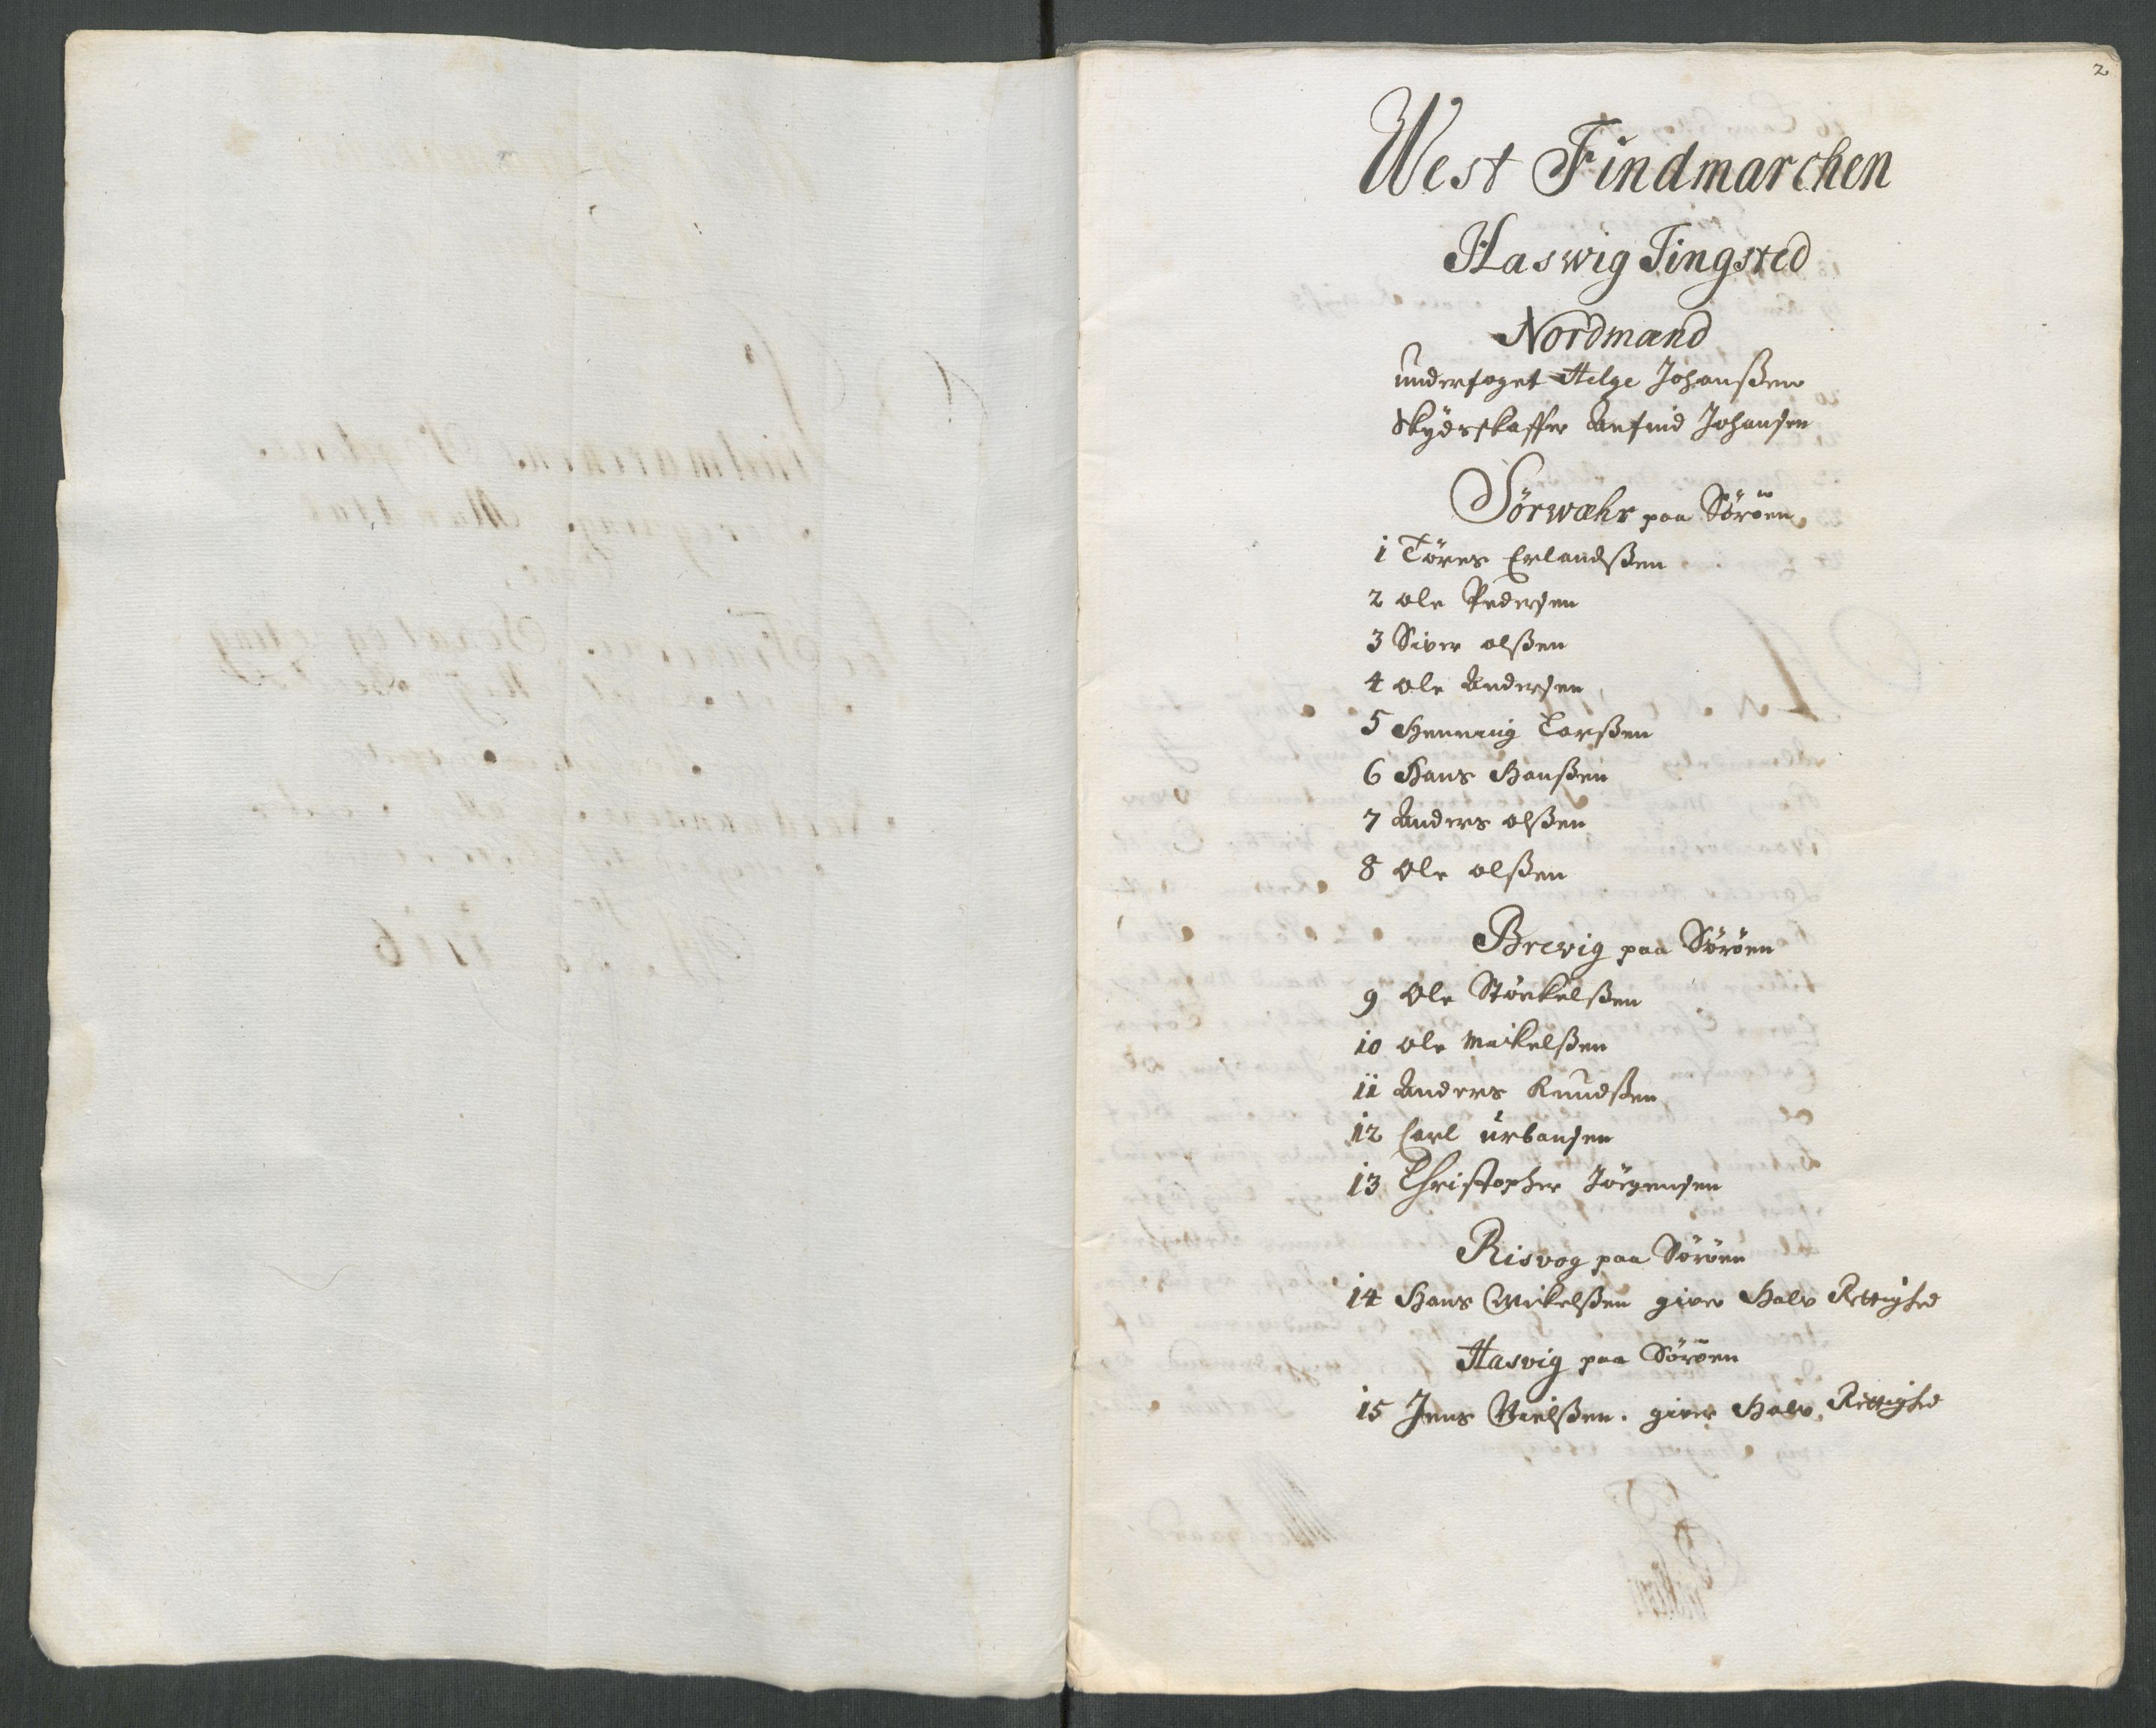 2
West Findmarchen
Haswig Tingsted
Nordmænd
underfoget Helge Johanßen
Skydsskaffer Arfind Johansen
Sørwæhr paa Sørøen
1 Tøres Erlandßen
2 ole Pedersen
3 Siver olßen
4 ole Andersen
5 Henning Larßen
6 Hans Hanßen
7 Anders olßen
8 Ole olßen
Brevig paa Sørøen
9 Ole Størkelßen
10 ole Mickelßen
11 Anders Knudßen
12 Carl Urbansen
13 Christopher Jørgensen
Risvog paa Sørøen
14 Hans Mickelßen giver Halv Rettighed
Hasvig paa Sørøen
15 Jens Nielßen. giver Halv Rettighed